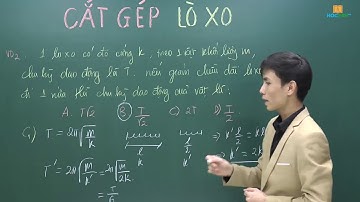 CẮT GÉP LÒ XO
HỌC
VD2 1 lò xo có độ cứng k, treo 1 vật khối lượng m,
chu kỳ dao động là T. nếu giảm chiều dài lò xo
đi 1 nửa thì chu kỳ dao động của vật là:
A. T√2 B) T/√2 C) 2T D) T/2
G) T = 2π√(m/k) l k l/2 k' k'l/2 = kl
T' = 2π√(m/k') = 2π√(m/2k) => k' = 2k
= T/√2